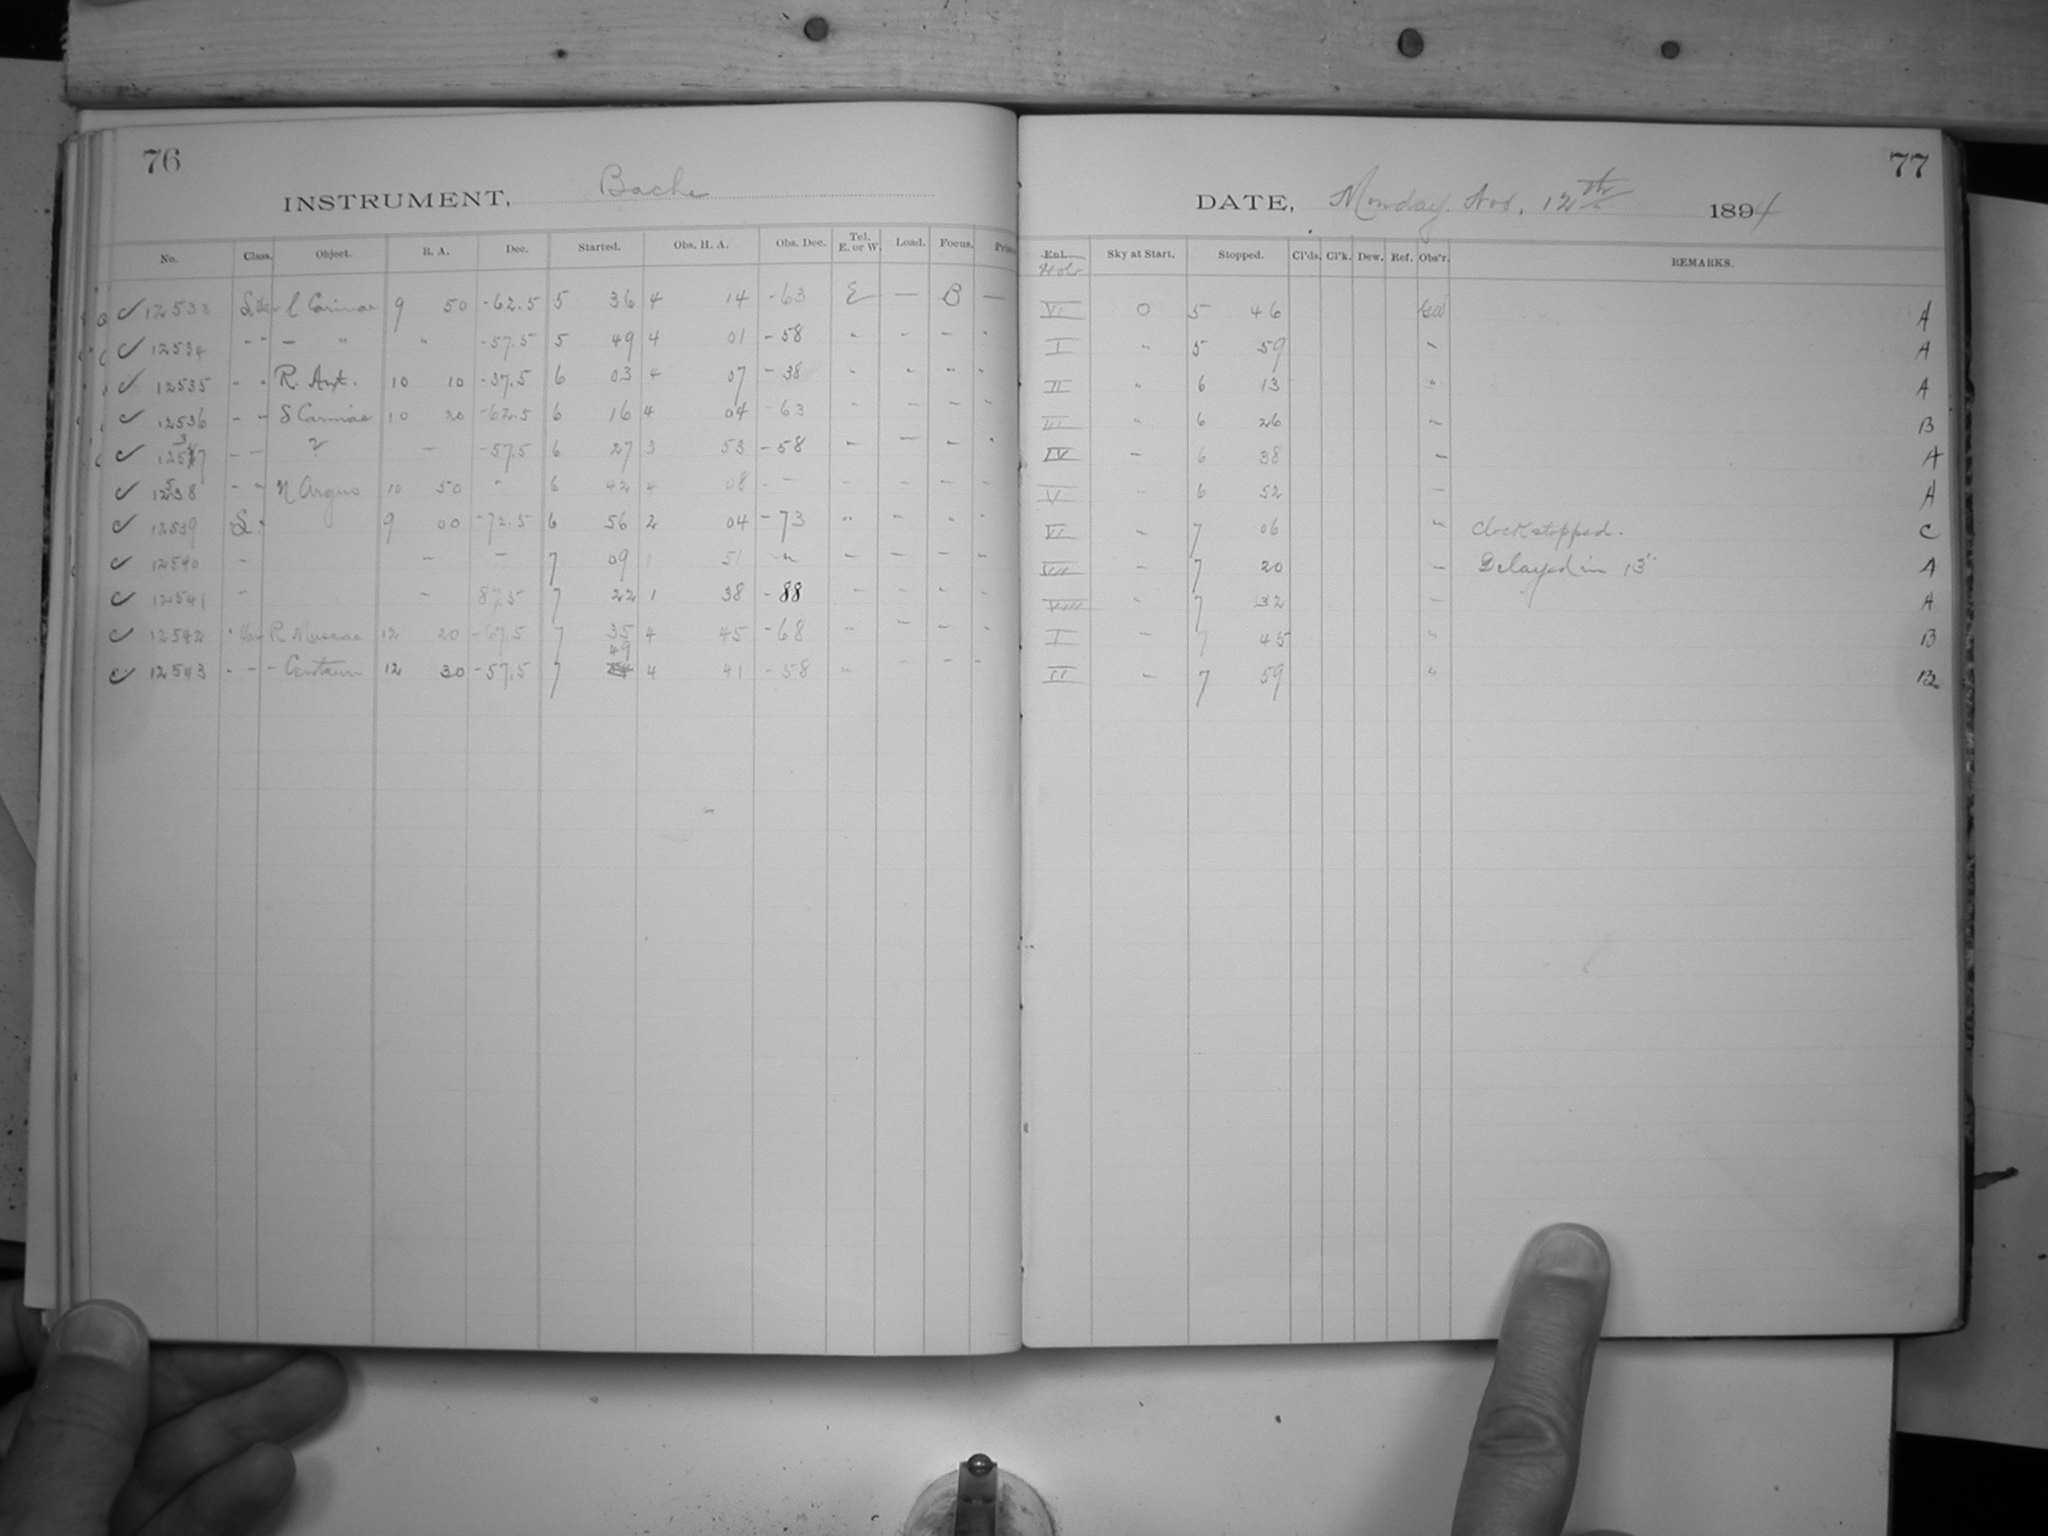 76
INSTRUMENT, Bache
No. Class. Object. R. A. Dec. Started. Obs. H. A. Obs. Dec. Tel. E. or W. Load. Focus.
✓ 12533 l Carinae 9 50 -62.5 5 36 4 14 -63 E — B —
✓ 12534 " " — " " -57.5 5 49 4 01 -58 " - - "
✓ 12535 " " R. Ant. 10 10 -37.5 6 03 4 07 -38 " " " "
✓ 12536 " " S Carinae 10 20 -62.5 6 16 4 04 -63 " - - -
✓ 12537 - - " - -57.5 6 27 3 53 -58 - - - "
✓ 12538 " " η Argus 10 50 " 6 42 4 08 - - - - - -
✓ 12539 9 00 -72.5 6 56 2 04 -73 " - " "
✓ 12540 - - - 7 09 1 51 - " - - - -
✓ 12541 " - 87.5 7 22 1 38 -88 - - - -
✓ 12542 " Var R Muscae 12 20 -67.5 7 35 4 45 -68 " - " -
✓ 12543 - - - Centauri 12 30 -57.5 7 49 4 41 -58 " - - -
77
DATE, Monday. Nov. 12th 1894
Enl. Sky at Start. Stopped. Cl'ds. Cl'k. Dew. Ref. Obs'r. REMARKS.
Holr
VI 0 5 46 A
I " 5 59 " A
II " 6 13 " A
III " 6 26 " B
IV - 6 38 - A
V " 6 52 - A
VI - 7 06 " Clock stopped. C
VII - 7 20 - Delayed in 13s A
VIII " 7 32 - A
I - 7 45 " B
II - 7 59 " B